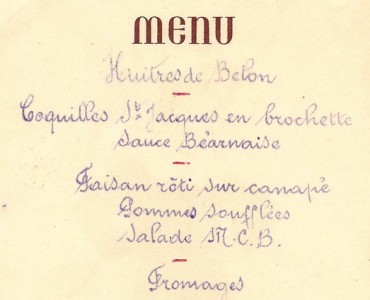 MENU
Huitres de Belon
Coquilles St Jacques en brochette
sauce Béarnaise
Faisan rôti sur canapé
Pommes soufflées
Salade M.C.B.
Fromages